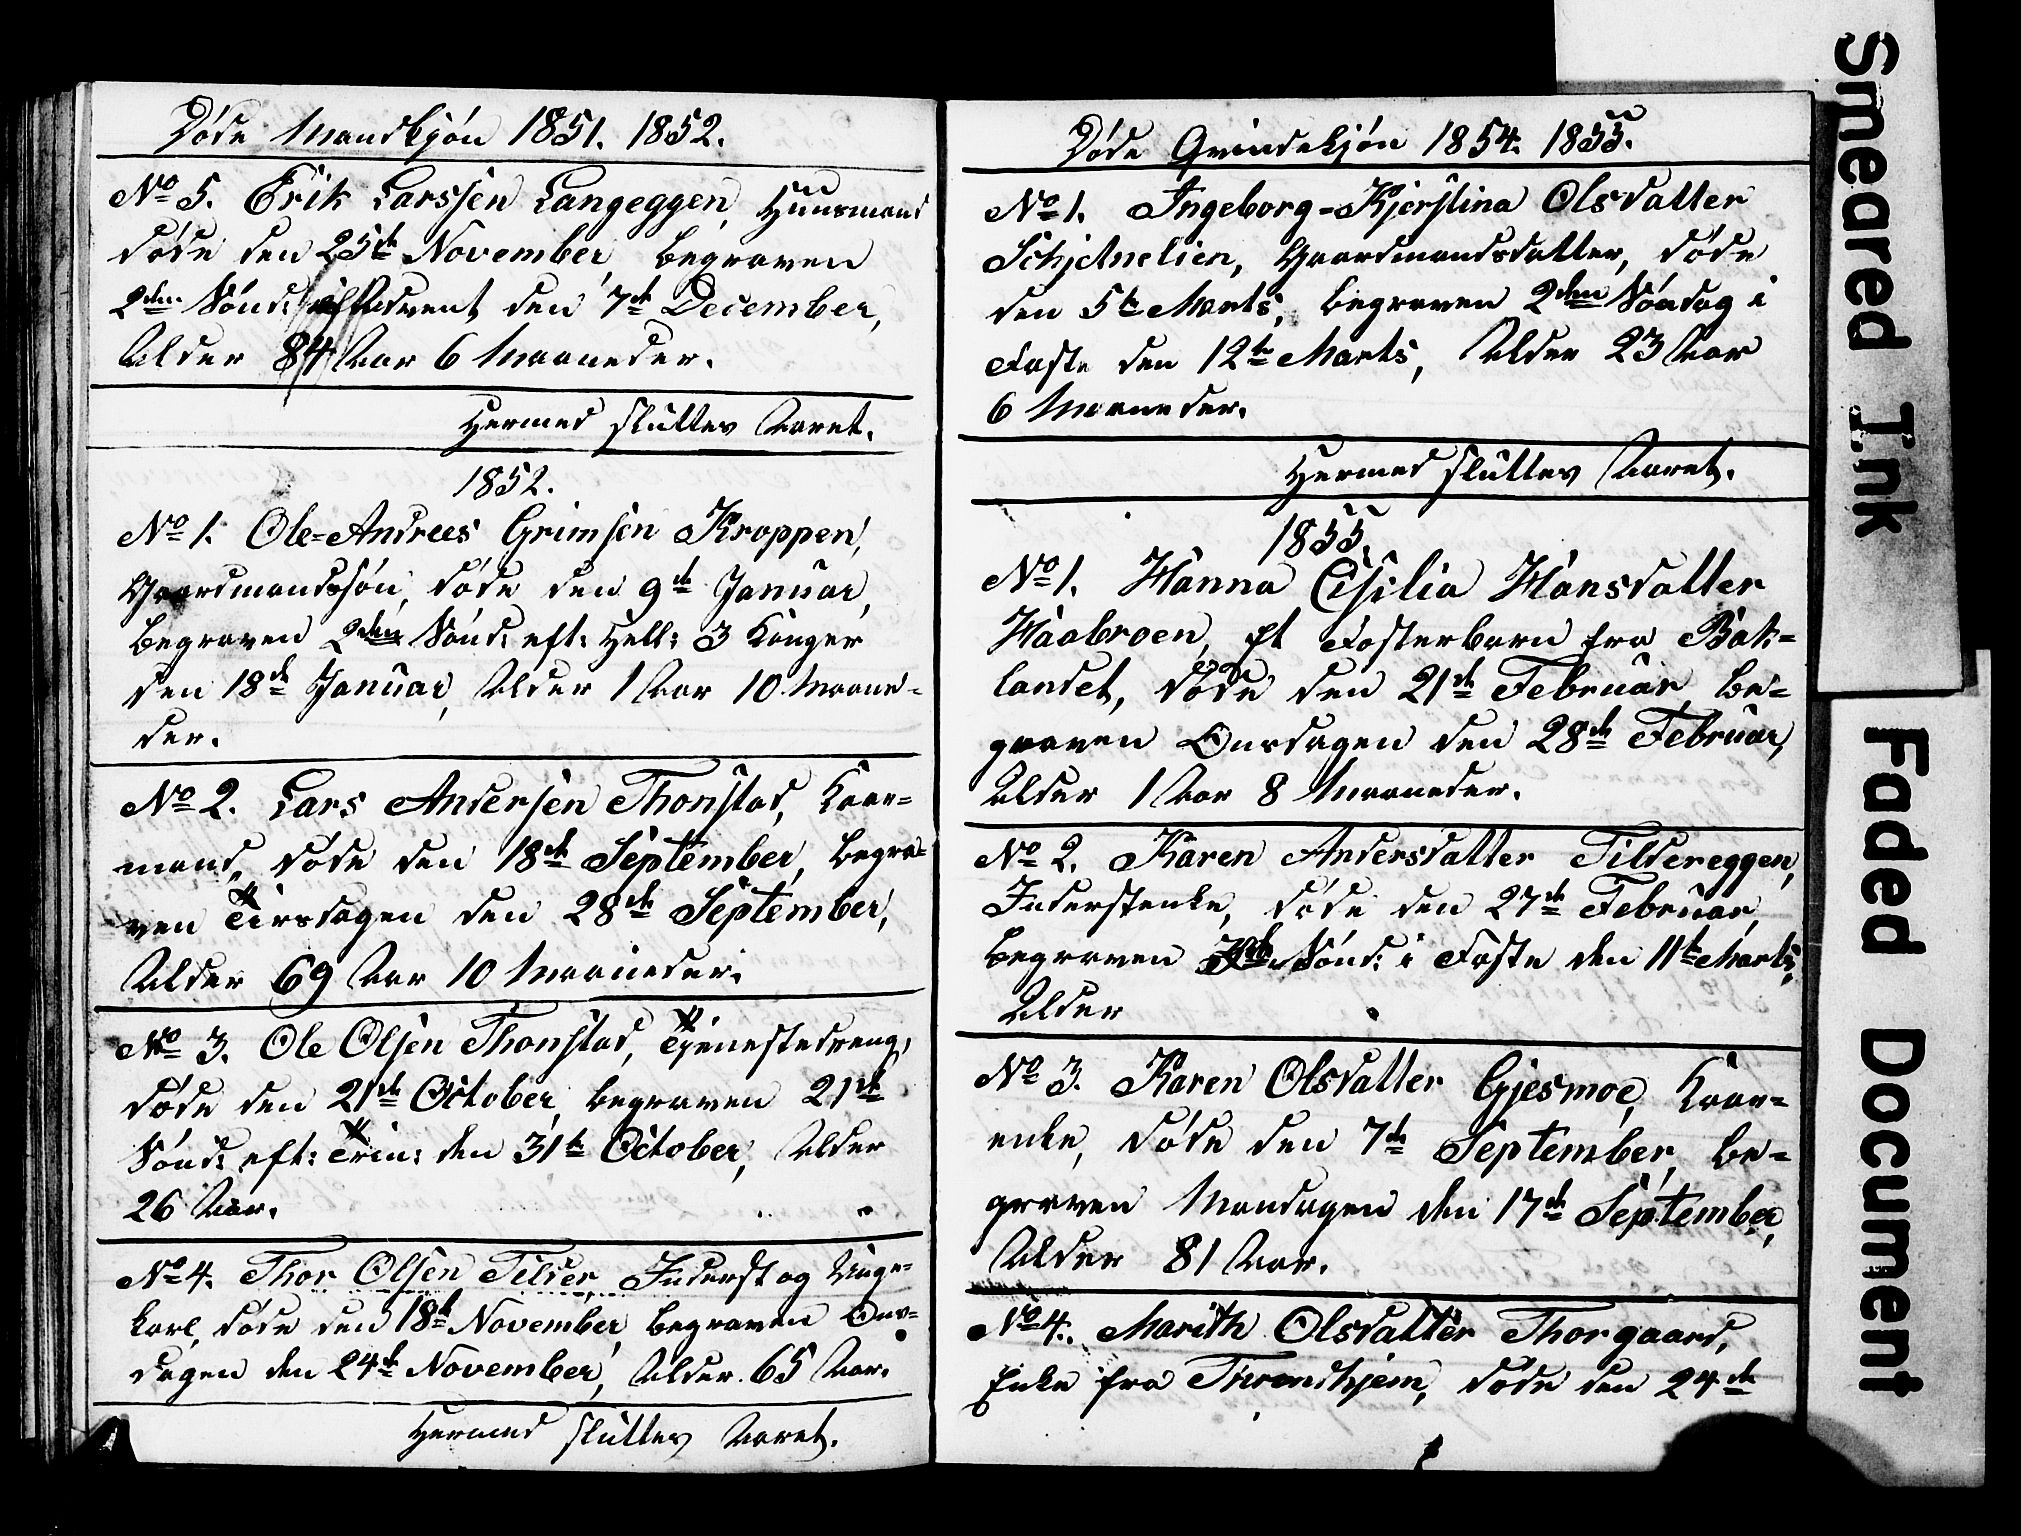 Døde Mandkjøn 1851. 1852.
No 5. Erik Larssen Langeggen, Huusmand
døde den 25de November, begraven
2den Sønd: i Advent den 7de December,
Alder 84 Aar 6 Maaneder.
Hermed sluttes Aaret.
1852.
No 1. Ole-Andrees Grimsen Kroppen,
Gaardmandssøn, døde den 9de Januar,
begraven 2den Sønd: eft: Hell: 3 Konger
den 18de Januar, Alder 1 Aar 10 Maane-
der.
No 2. Lars Andersen Thonstad, Kaar-
mand, døde den 18de September, begra-
ven Tirsdagen den 28de September,
Alder 69 Aar 10 Maaneder.
No 3. Ole Olsen Thonstad, Tjenestedreng,
døde den 21de October, begraven 21de
Sønd: eft: Trin: den 31te October, Alder
26 Aar.
No 4. Thor Olsen Tilder, Inderst og Unge-
karl, døde den 18de November, begraven Ons-
dagen den 24de November, Alder 65 Aar.
Hermed sluttes Aaret.
Døde Qvindekjøn 1854. 1855.
No 1. Ingeborg-Kjerstina Olsdatter
Schjetnelien, Gaardmandsdatter, døde
den 5te Marts, begraven 2den Søndag i
Faste den 12te Marts, Alder 23 Aar
6 Maaneder.
Hermed sluttes Aaret.
1855.
No 1. Hanna Cisilia Hansdatter
Haabroen, et Fosterbarn fra Bak-
landet, døde den 21de Februar, be-
graven Onsdagen den 28de Februar,
Alder 1 Aar 8 Maaneder.
No 2. Karen Andersdatter Tildereggen,
Inderstenke, døde den 27de Februar,
begraven Sønd: i Faste den 11te Marts,
Alder
No 3. Karen Olsdatter Gjesmoe, Kaar-
enke, døde den 7de September, be-
graven Mandagen den 17de September,
Alder 81 Aar.
No 4. Marith Olsdatter Thorgaard,
Enke fra Throndhjem, døde den 24de
Smeared Ink
Faded Document